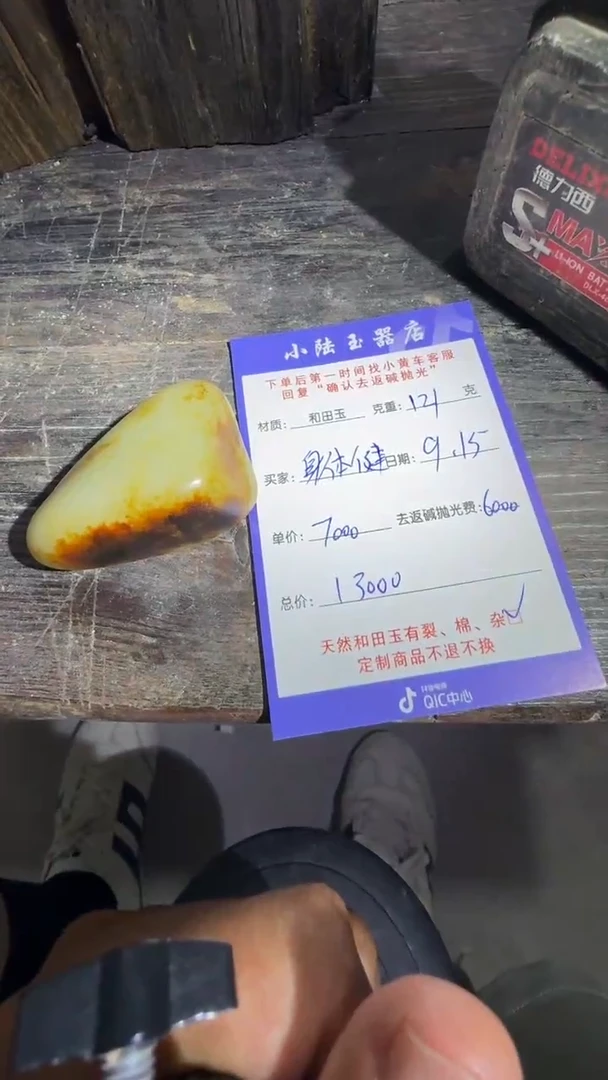 小陆玉器店
下单后第一时间找小黄车客服
回复“确认去返碱抛光”
材质: 和田玉 克重: 121 克
买家: 身体健 日期: 9.15
单价: 7000 去返碱抛光费: 6000
总价: 13000
天然和田玉有裂、棉、杂
定制商品不退不换
抖音电商
QIC中心
DELIX
德力西
S+ MAX
LI-ION BAT